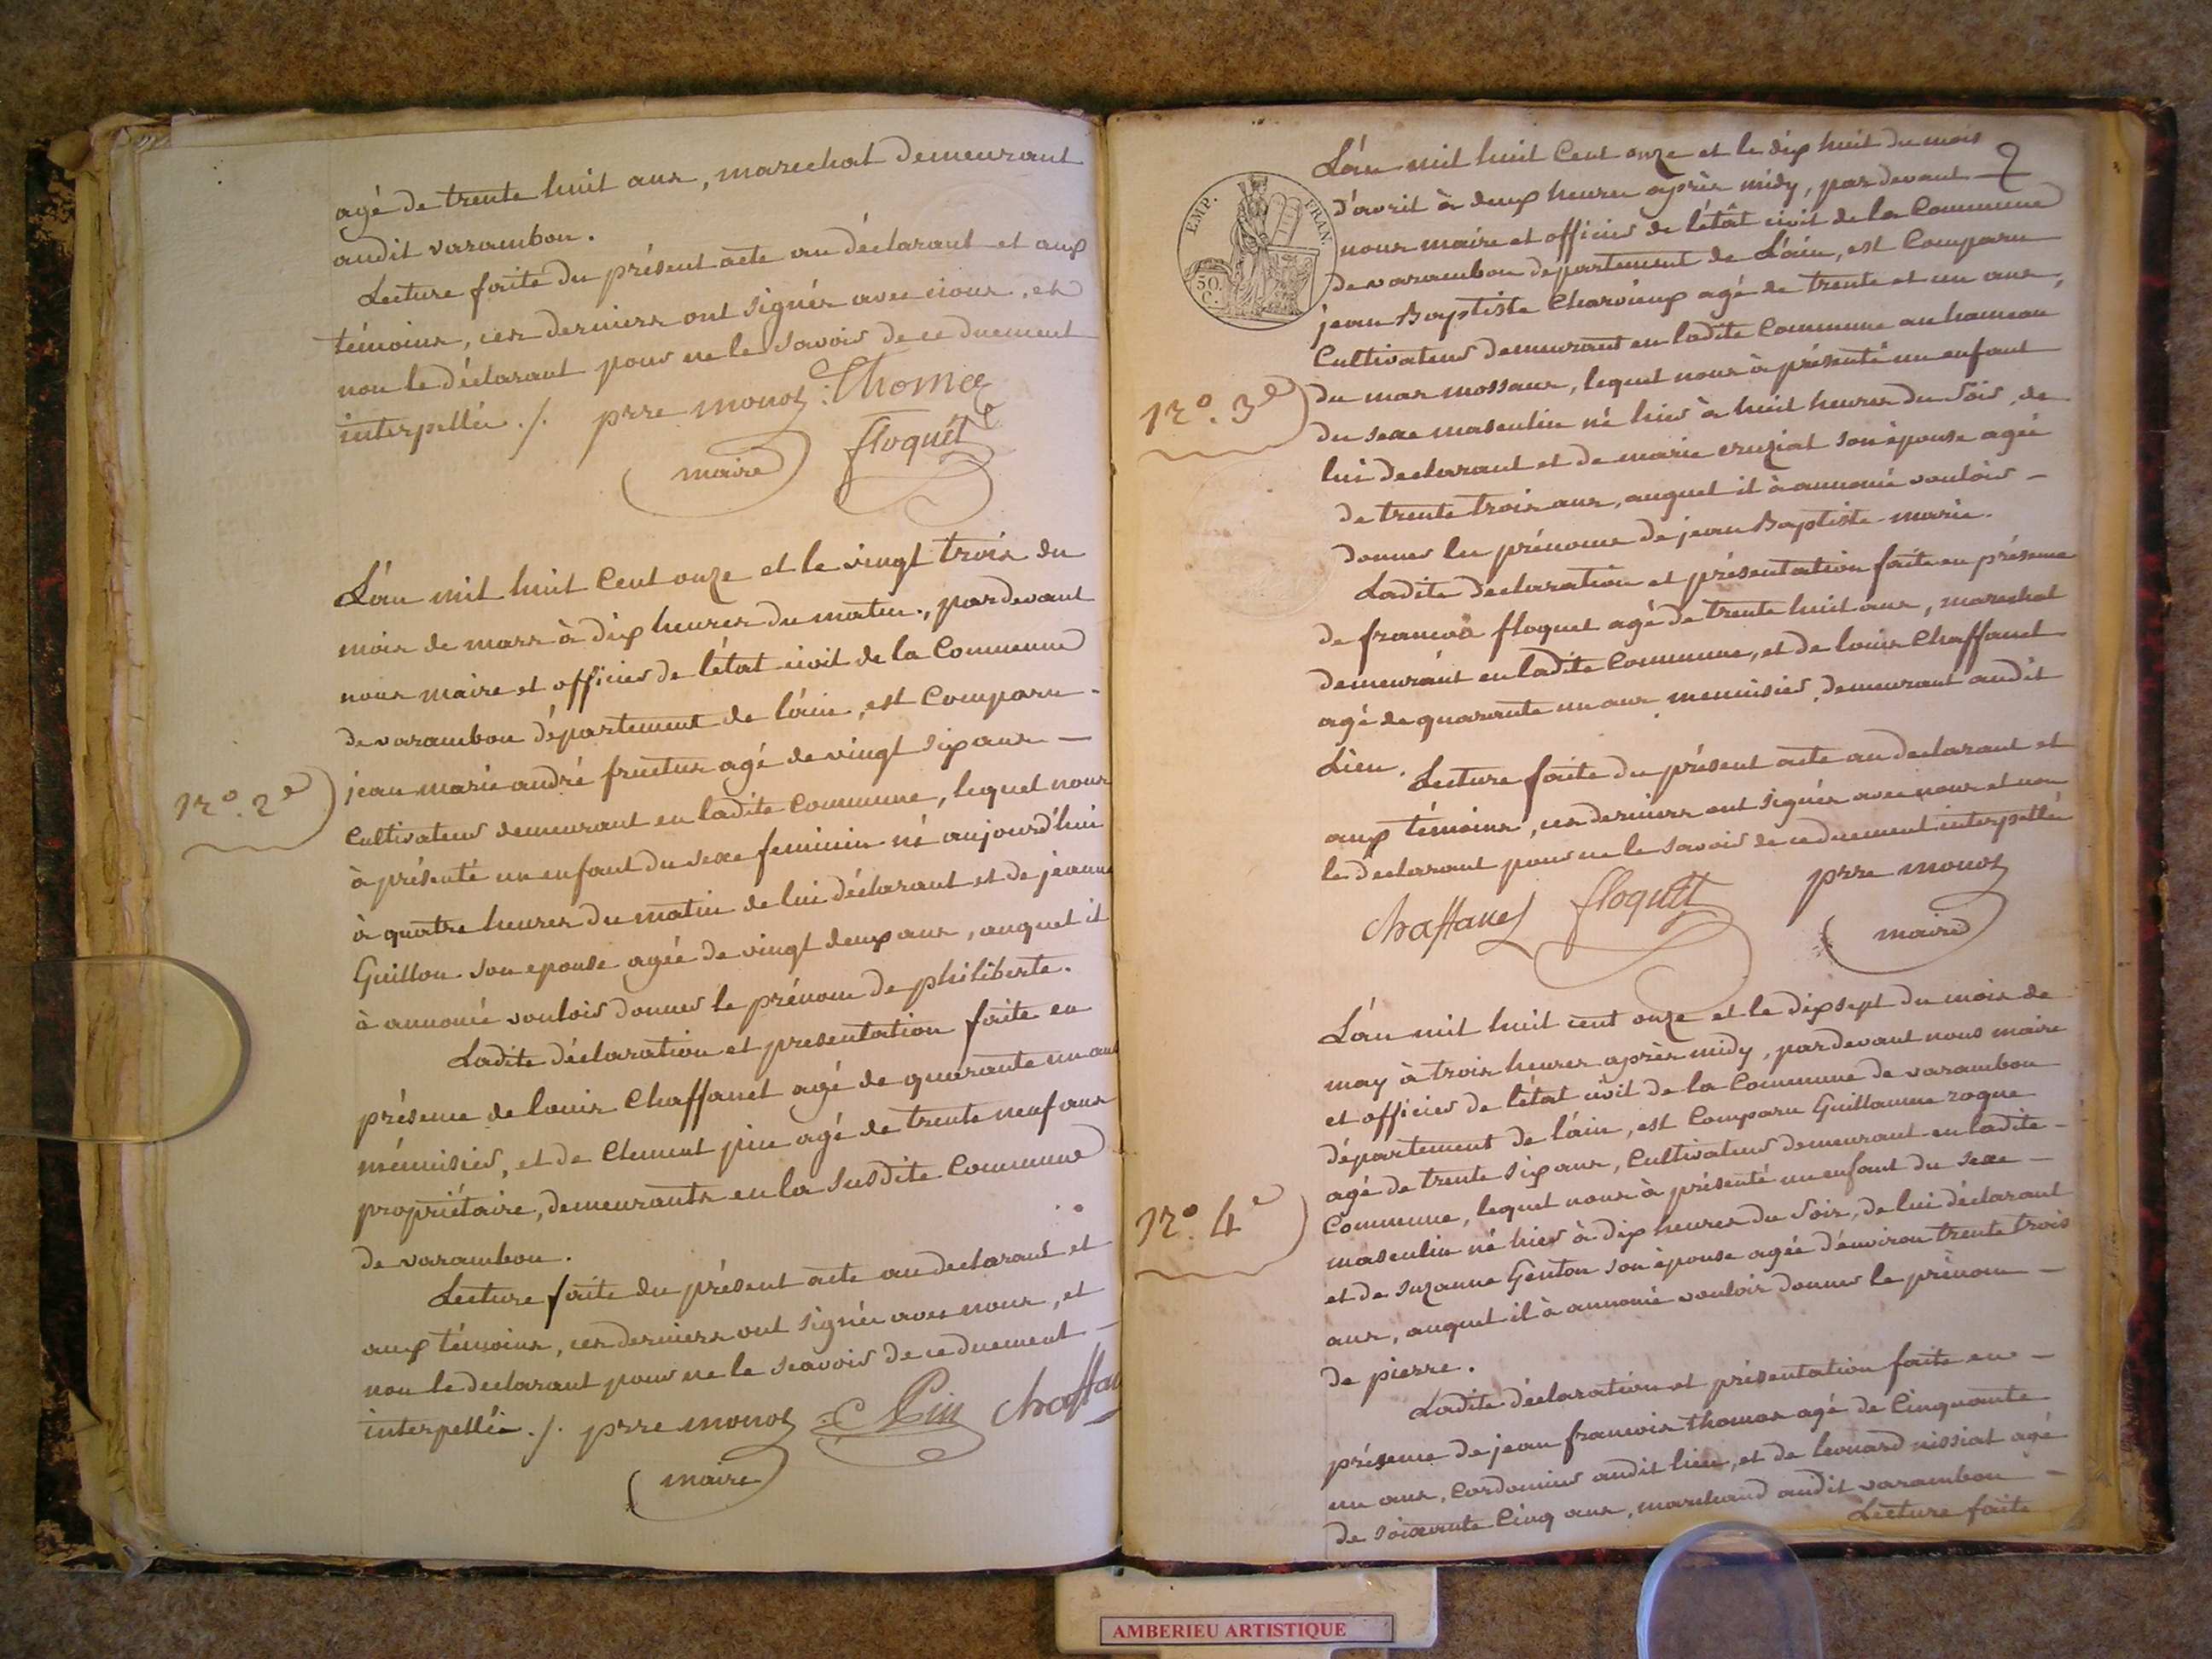 agé de trente huit ans, marechal demeurant
audit varambon.
Lecture faite du présent acte au déclarant et aux
témoins, ces derniers ont signés avec nous, et
non le déclarant pour ne le savoir de ce duement
interpellé ./. prre monoz Thomas
maire floquet
L'an mil huit Cent onze et le vingt trois du
mois de mars à dix heures du matin, pardevant
nous maire et officier de l'état civil de la Commune
de varambon département de l'ain, est Comparu
N.o 2.e
jean marie andré fructus agé de vingt six ans
Cultivateur demeurant en ladite Commune, lequel nous
à présenté un enfant du sexe feminin né aujourd'hui
à quatre heures du matin de lui déclarant et de jeanne
Guillon son epouse agée de vingt deux ans, auquel il
à annoncé vouloir donner le prénom de philiberte.
Ladite déclaration et presentation faite en
présence de louis Chaffanet agé de quarante un ans
ménuisier, et de Clement pin agé de trente neuf ans
propriétaire, demeurants en la susdite Commune
de varambon.
Lecture faite du présent acte au declarant et
aux témoins, ces derniers ont signés avec nous, et
non le declarant pour ne le scavoir de ce duement
interpellé ./. prre monoz C Pin Chaffan
maire
EMP. FRAN.
50. C.
L'an mil huit Cent onze et le dix huit du mois
d'avril à deux heures après midy, pardevant
nous maire et officier de l'état civil de la Commune
de varambon département de L'ain, est Comparu
jean Baptiste Charvieux agé de trente et un ans,
Cultivateur demeurant en ladite Commune au hameau
N.o 3.e
du mas mossaus, lequel nous à présenté un enfant
du sexe masculin né hier à huit heures du Soir, de
lui declarant et de marie cruziat son épouse agée
de trente trois ans, auquel il à annoncé vouloir
donner les prénoms de jean Baptiste marie.
Ladite declaration et présentation faite en présence
de francois floquet agé de trente huit ans, marechal
demeurant en ladite Commune, et de louis Chaffanet
agé de quarante un ans menuisier, demeurant audit
Lieu.
Lecture faite du présent acte au declarant et
aux témoins, ces derniers ont signés avec nous et non
le declarant pour ne le savoir de ce duement interpellé
Chaffanet floquet prre monoz
maire
L'an mil huit cent onze et le dix sept du mois de
may à trois heures après midy, pardevant nous maire
et officier de l'état civil de la Commune de varambon
département de l'ain, est Comparu Guillaume rogue
agé de trente six ans, Cultivateur demeurant en ladite
N.o 4.e
Commune, lequel nous à présenté un enfant du sexe
masculin né hier à dix heures du Soir, de lui déclarant
et de suzanne Genton son épouse agée d'environ trente trois
ans, auquel il à annoncé vouloir donner le prénom
de pierre.
Ladite déclaration et présentation faite en
présence de jean francois thomas agé de Cinquante
un ans, Cordonnier audit lieu, et de leonard nissiat agé
de soixante Cinq ans, marchand audit varambon
Lecture faite
AMBERIEU ARTISTIQUE